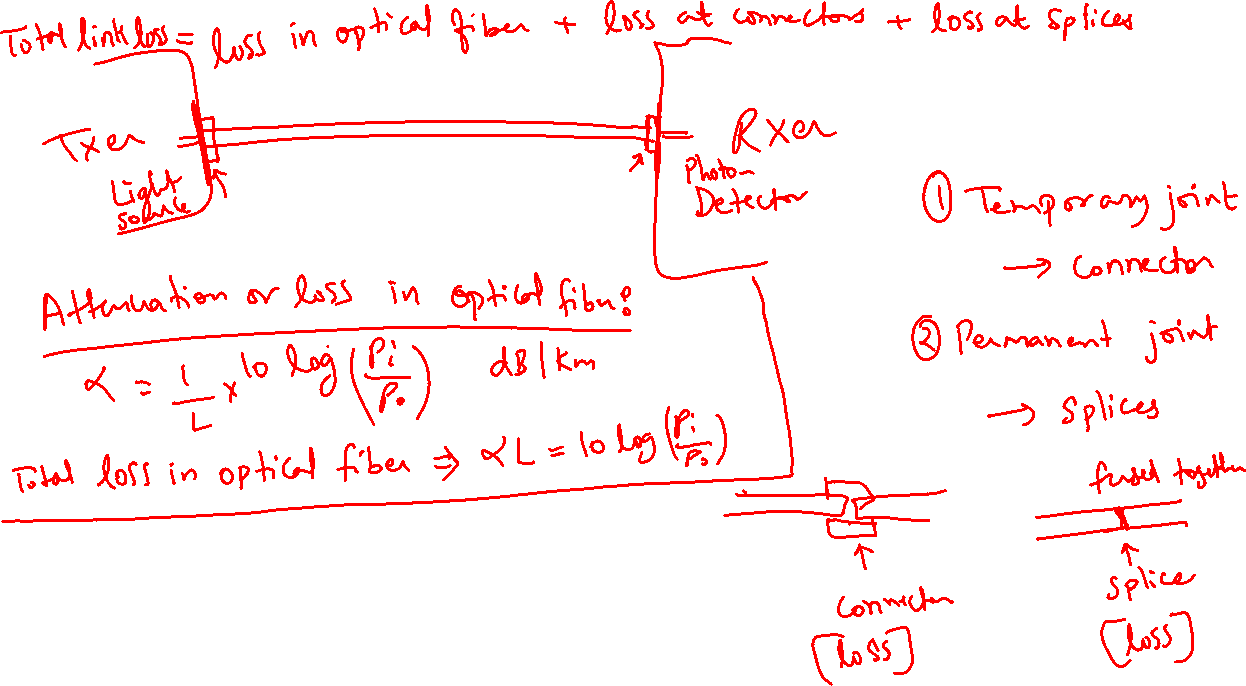 Total link loss = loss in optical fiber + loss at connectors + loss at splices
Txer
Light
source
Rxer
Photo-
Detector
① Temporary joint
→ Connector
② Permanent joint
→ Splices
Attenuation or loss in optical fiber:
α = 1/L × 10 log (Pi/Po) dB/km
Total loss in optical fiber ⇒ αL = 10 log (Pi/Po)
connector
[loss]
fused together
splice
[loss]